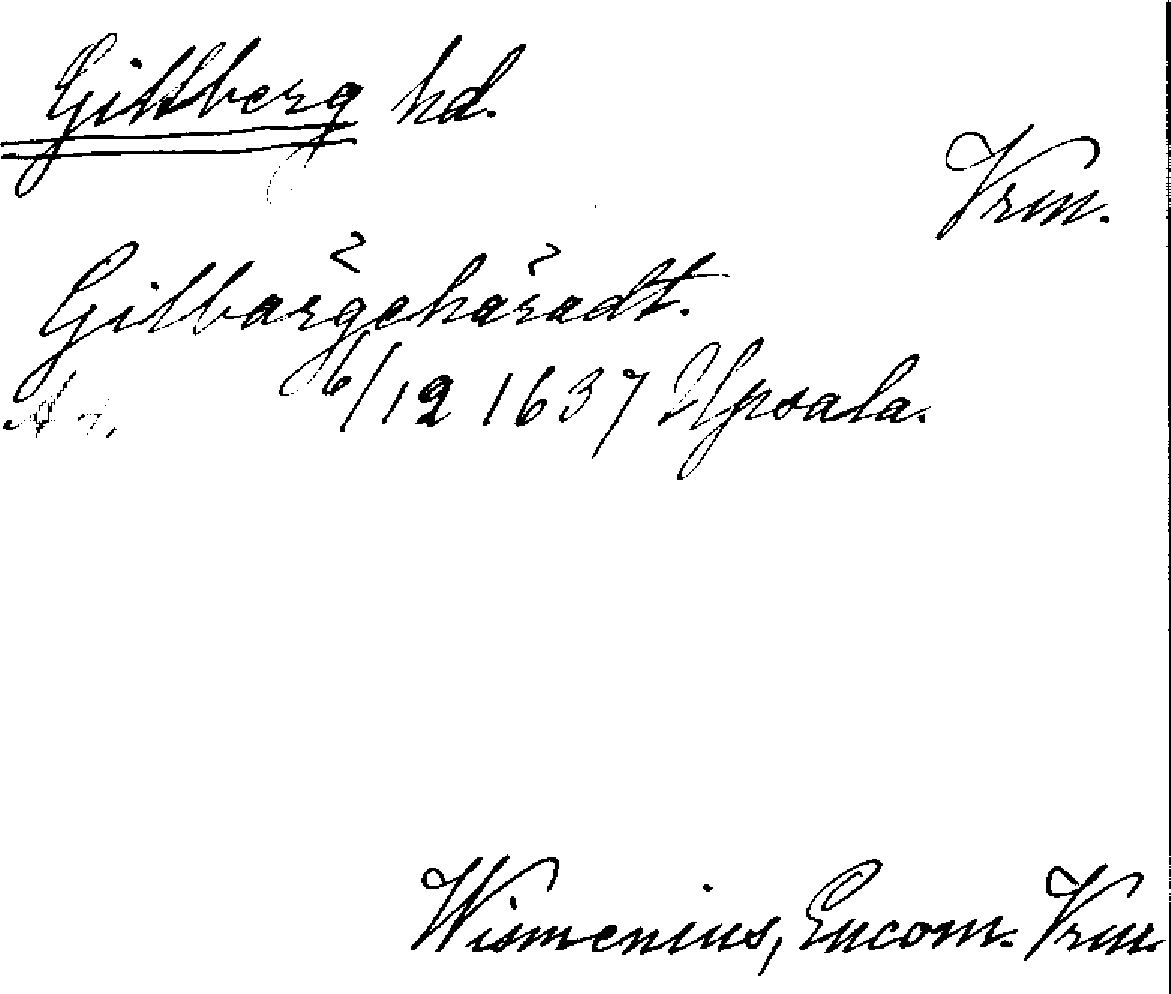 Gillberg hd.
Vrm.
Gilbargehäradt.
6/12 1637 Upsala.
Wismenius, Encom. Vrm.